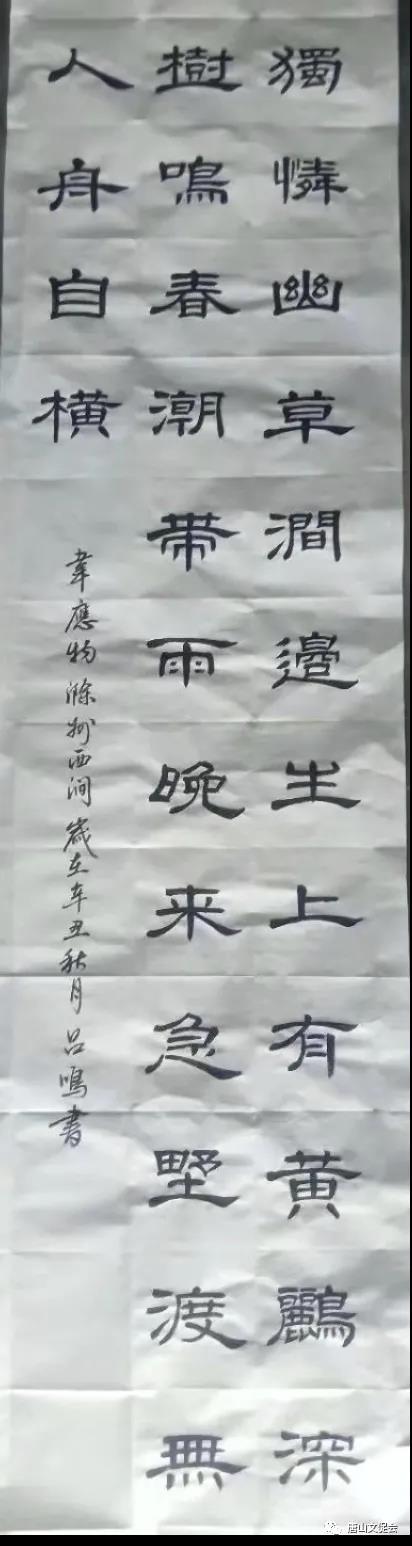 獨憐幽草澗邊生上有黃鸝深
樹鳴春潮帶雨晚来急野渡無
人舟自橫
韋應物滁州西澗歲在辛丑秋月吕鳴書
唐山文促会